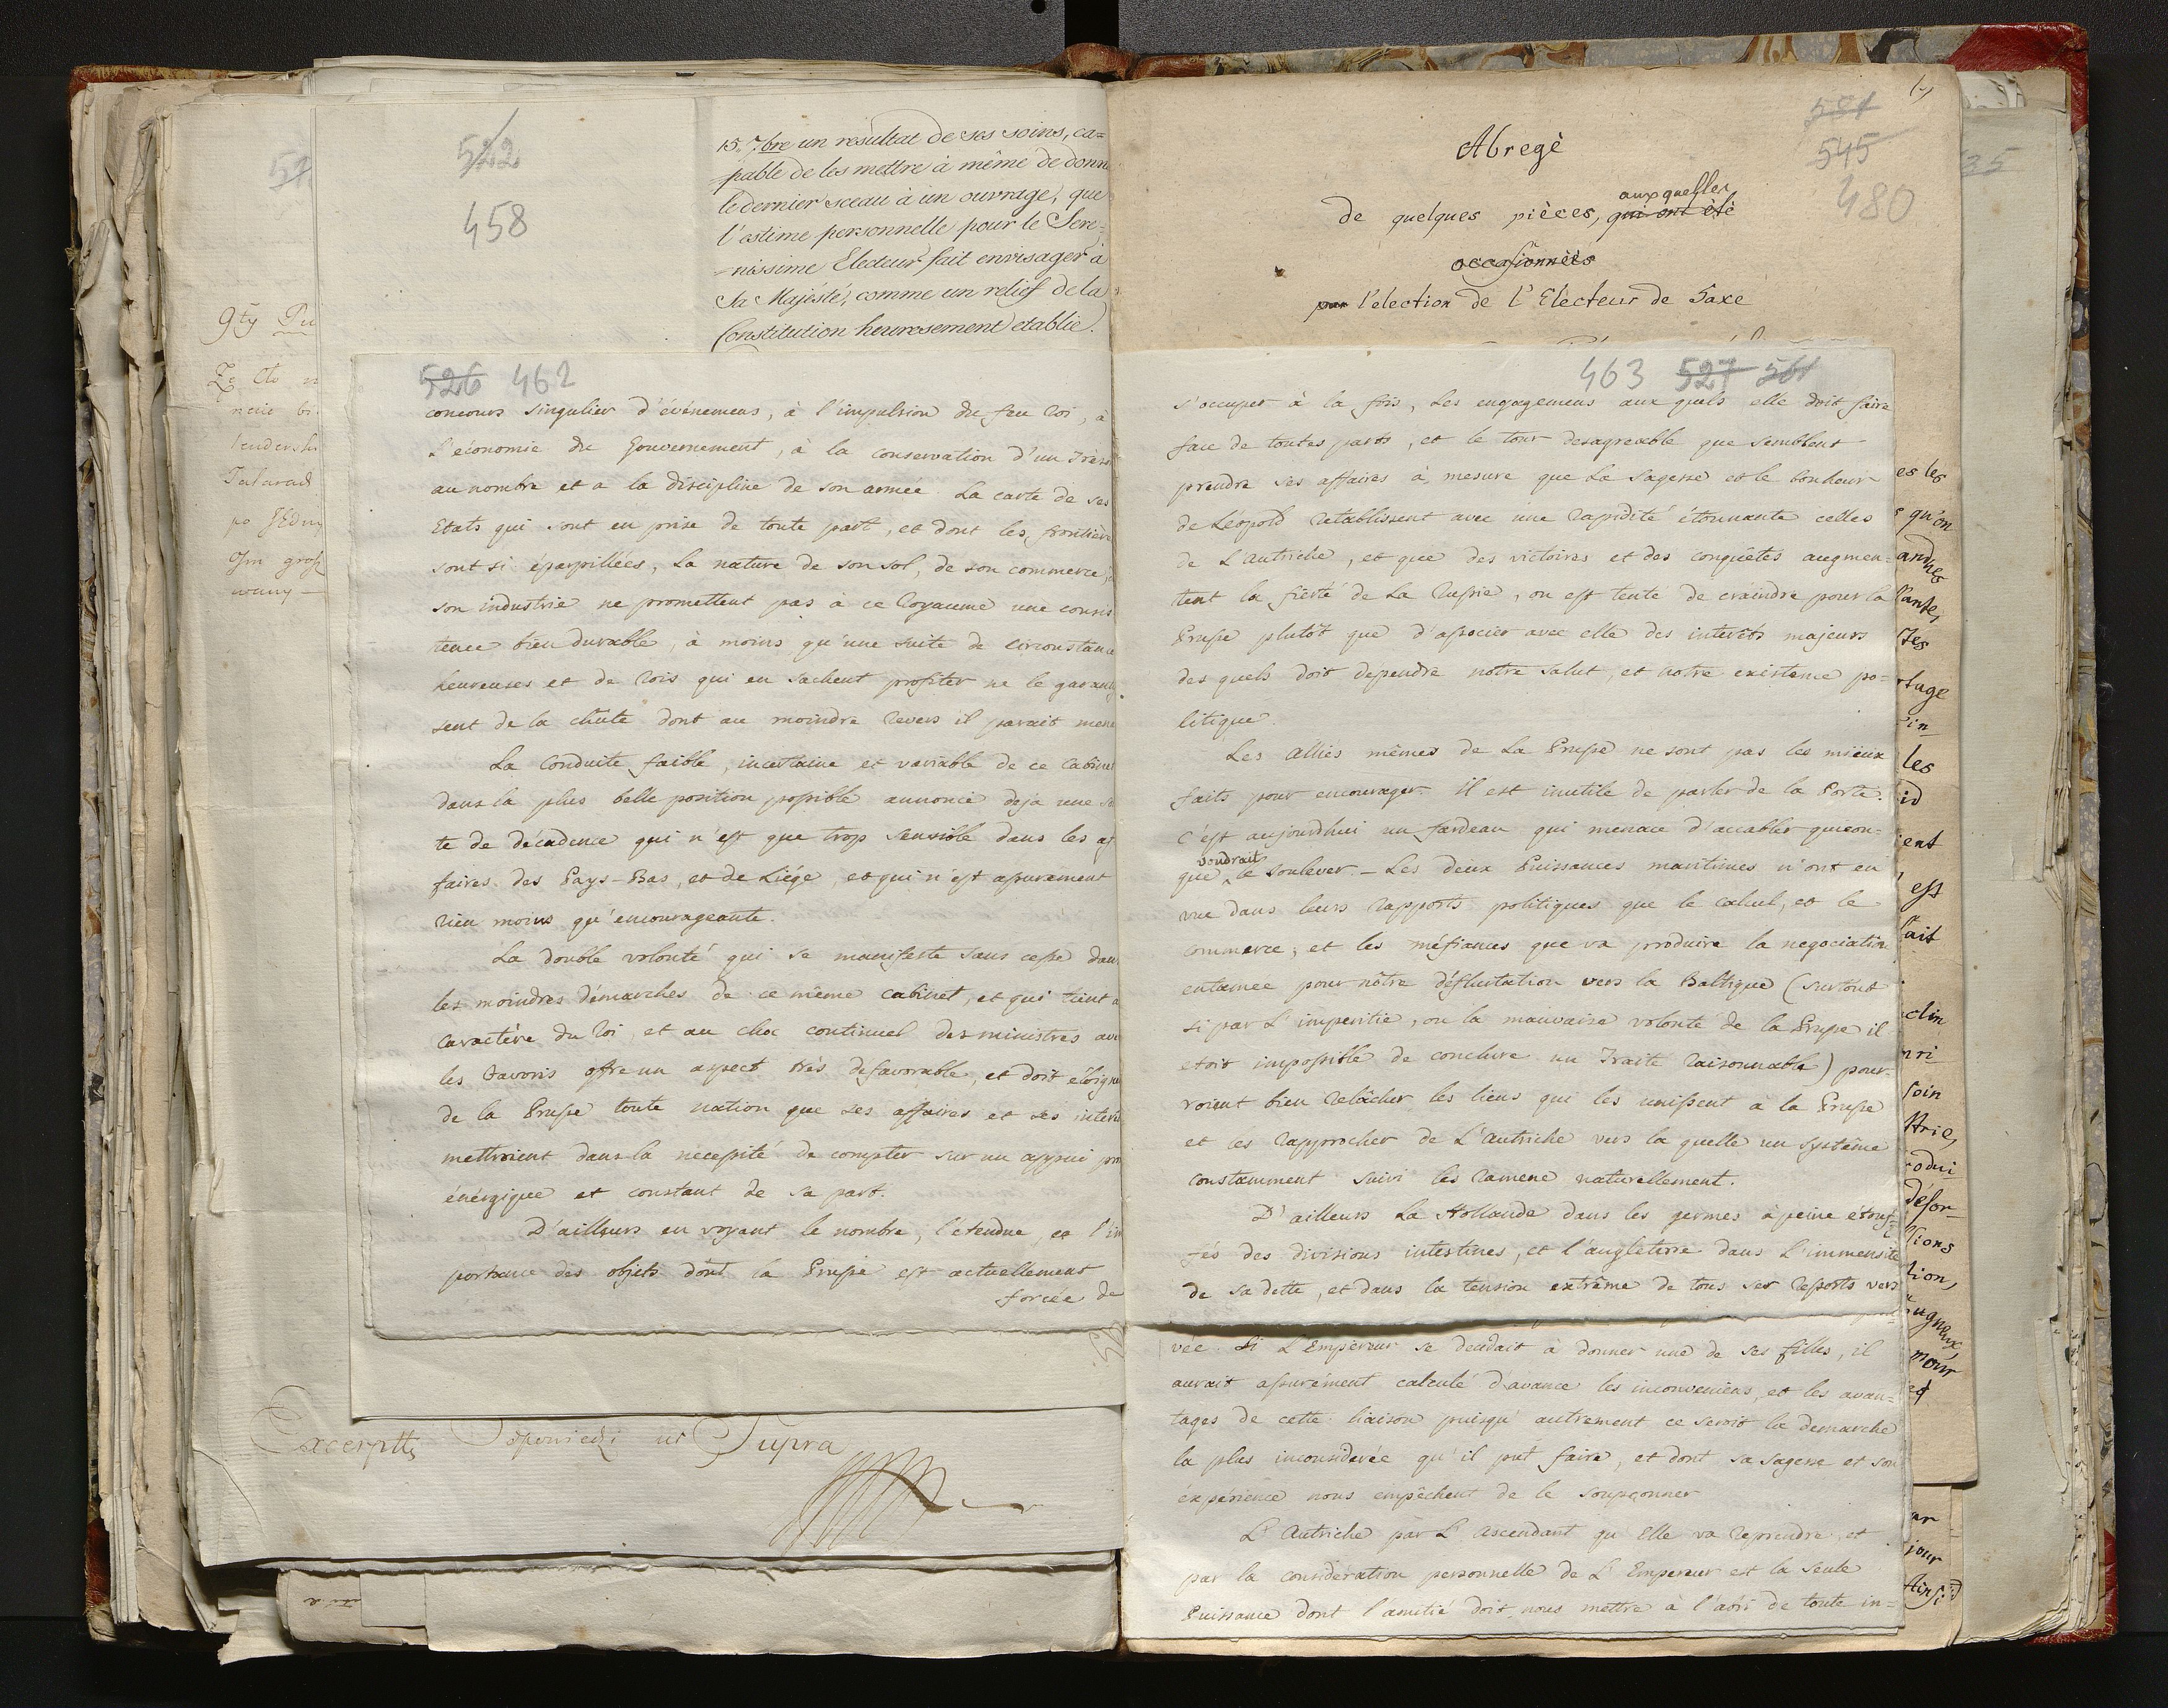 522
458
15. 7bre un resultat de ses soins, ca=
pable de les mettre à même de donn
le dernier sceau à un ouvrage, que
l'estime personnelle pour le Sere=
nissime Electeur fait envisager à
Sa Majésté, comme un relief de la
Constitution heureusement etablie.
526 462
concours singulier d'événemens, à l'impulsion du feu roi, à
L'économie du Gouvernement, à la conservation d'un Trés
au nombre et a la discipline de son armée. La carte de ses
Etats qui sont en prise de toute part, et dont les frontière
sont si éparpillées, La nature de son sol, de son commerce,
son industrie ne promettent pas à ce royaume une consis
tence bien durable, à moins qu'une suite de circonstance
heureuses et de rois qui en sachent profiter ne le garantis
sent de la chûte dont au moindre revers il parait mena
La Conduite faible, incertaine et variable de ce Cabinet
dans la plus belle position possible annonce deja une so
te de décadence qui n'est que trop sensible dans les af
faires des Pays-Bas, et de Liége, et qui n'est assurement
rien moins qu'encourageante.
La double volonté qui se manifeste sans cesse dans
les moindres démarches de ce même cabinet, et qui tient a
caractére du roi, et au choc continuel des ministres ave
les favoris offre un aspect trés défavorable, et doit eloigne
de la Prusse toute nation que ses affaires et ses interêt
mettroient dans la necessité de compter sur un appui pro
énérgique et constant de sa part.
D'ailleurs en voyant le nombre, l'étendue, et l'im
portance des objets dont la Prusse est actuellement
forcée de
Excerptt odpowiedzi ut Supra
9ty
545
480
Abregé
de quelques pièces, qui ont èté
auxquelles
occasionnèes
par l'election de l'Electeur de Saxe
463 527 561
s'occuper à la fois, Les engagemens aux quels elle doit faire
face de toutes parts, et le tour desagreable que semblent
prendre ses affaires à mesure que La Sagesse et le bonheur
de Léopold retablissent avec une rapidité étonnante celles
de L'autriche, et que des victoires et des conquêtes augmen=
tent la fiérté de La Russie, on est tenté de craindre pour la
Prusse plutôt que d'associer avec elle des interêts majeurs
des quels doit dependre notre salut, et notre existence po=
litique.
Les Alliés mêmes de La Prusse ne sont pas les mieux
faits pour encourager. Il est inutile de parler de la Porte.
C'est aujourdhui un fardeau qui menace d'accabler quicon=
voudrait
que le soulever. - Les deux Puissances maritimes n'ont en
vue dans leurs rapports politiques que le calcul, et le
commerce; et les méfiances que va produire la negociation
entamée pour nôtre défluitation vers la Baltique (surtout
si par L'imperitie, ou la mauvaise volonté de la Prusse il
etoit impossible de conclure un Traité raisonnable) pour=
roient bien relâcher les liens qui les unissent à la Prusse
et les rapprocher de L'autriche vers la quelle un systême
constamment suivi les ramene naturellement.
D'ailleurs La Hollande dans les germes à peine étouf=
fés des divisions intestines, et l'angleterre dans L'immensité
de sa dette, et dans la tension extrême de tous ses ressorts vers
vée. Si L'Empereur se decidait à donner une de ses filles, il
aurait assurément calculé d'avance les inconveniens, et les avan=
tages de cette liaison puisqu'autrement ce seroit la demarche
la plus inconsiderée qu'il put faire, et dont sa sagesse et son
éxpérience nous empêchent de le soupçonner
L'Autriche par L'ascendant qu'Elle va reprendre, et
par la considération personnelle de L'Empereur est la seule
Puissance dont l'amitié doit nous mettre à l'abri de toute in=
es les
qu'on
les
est